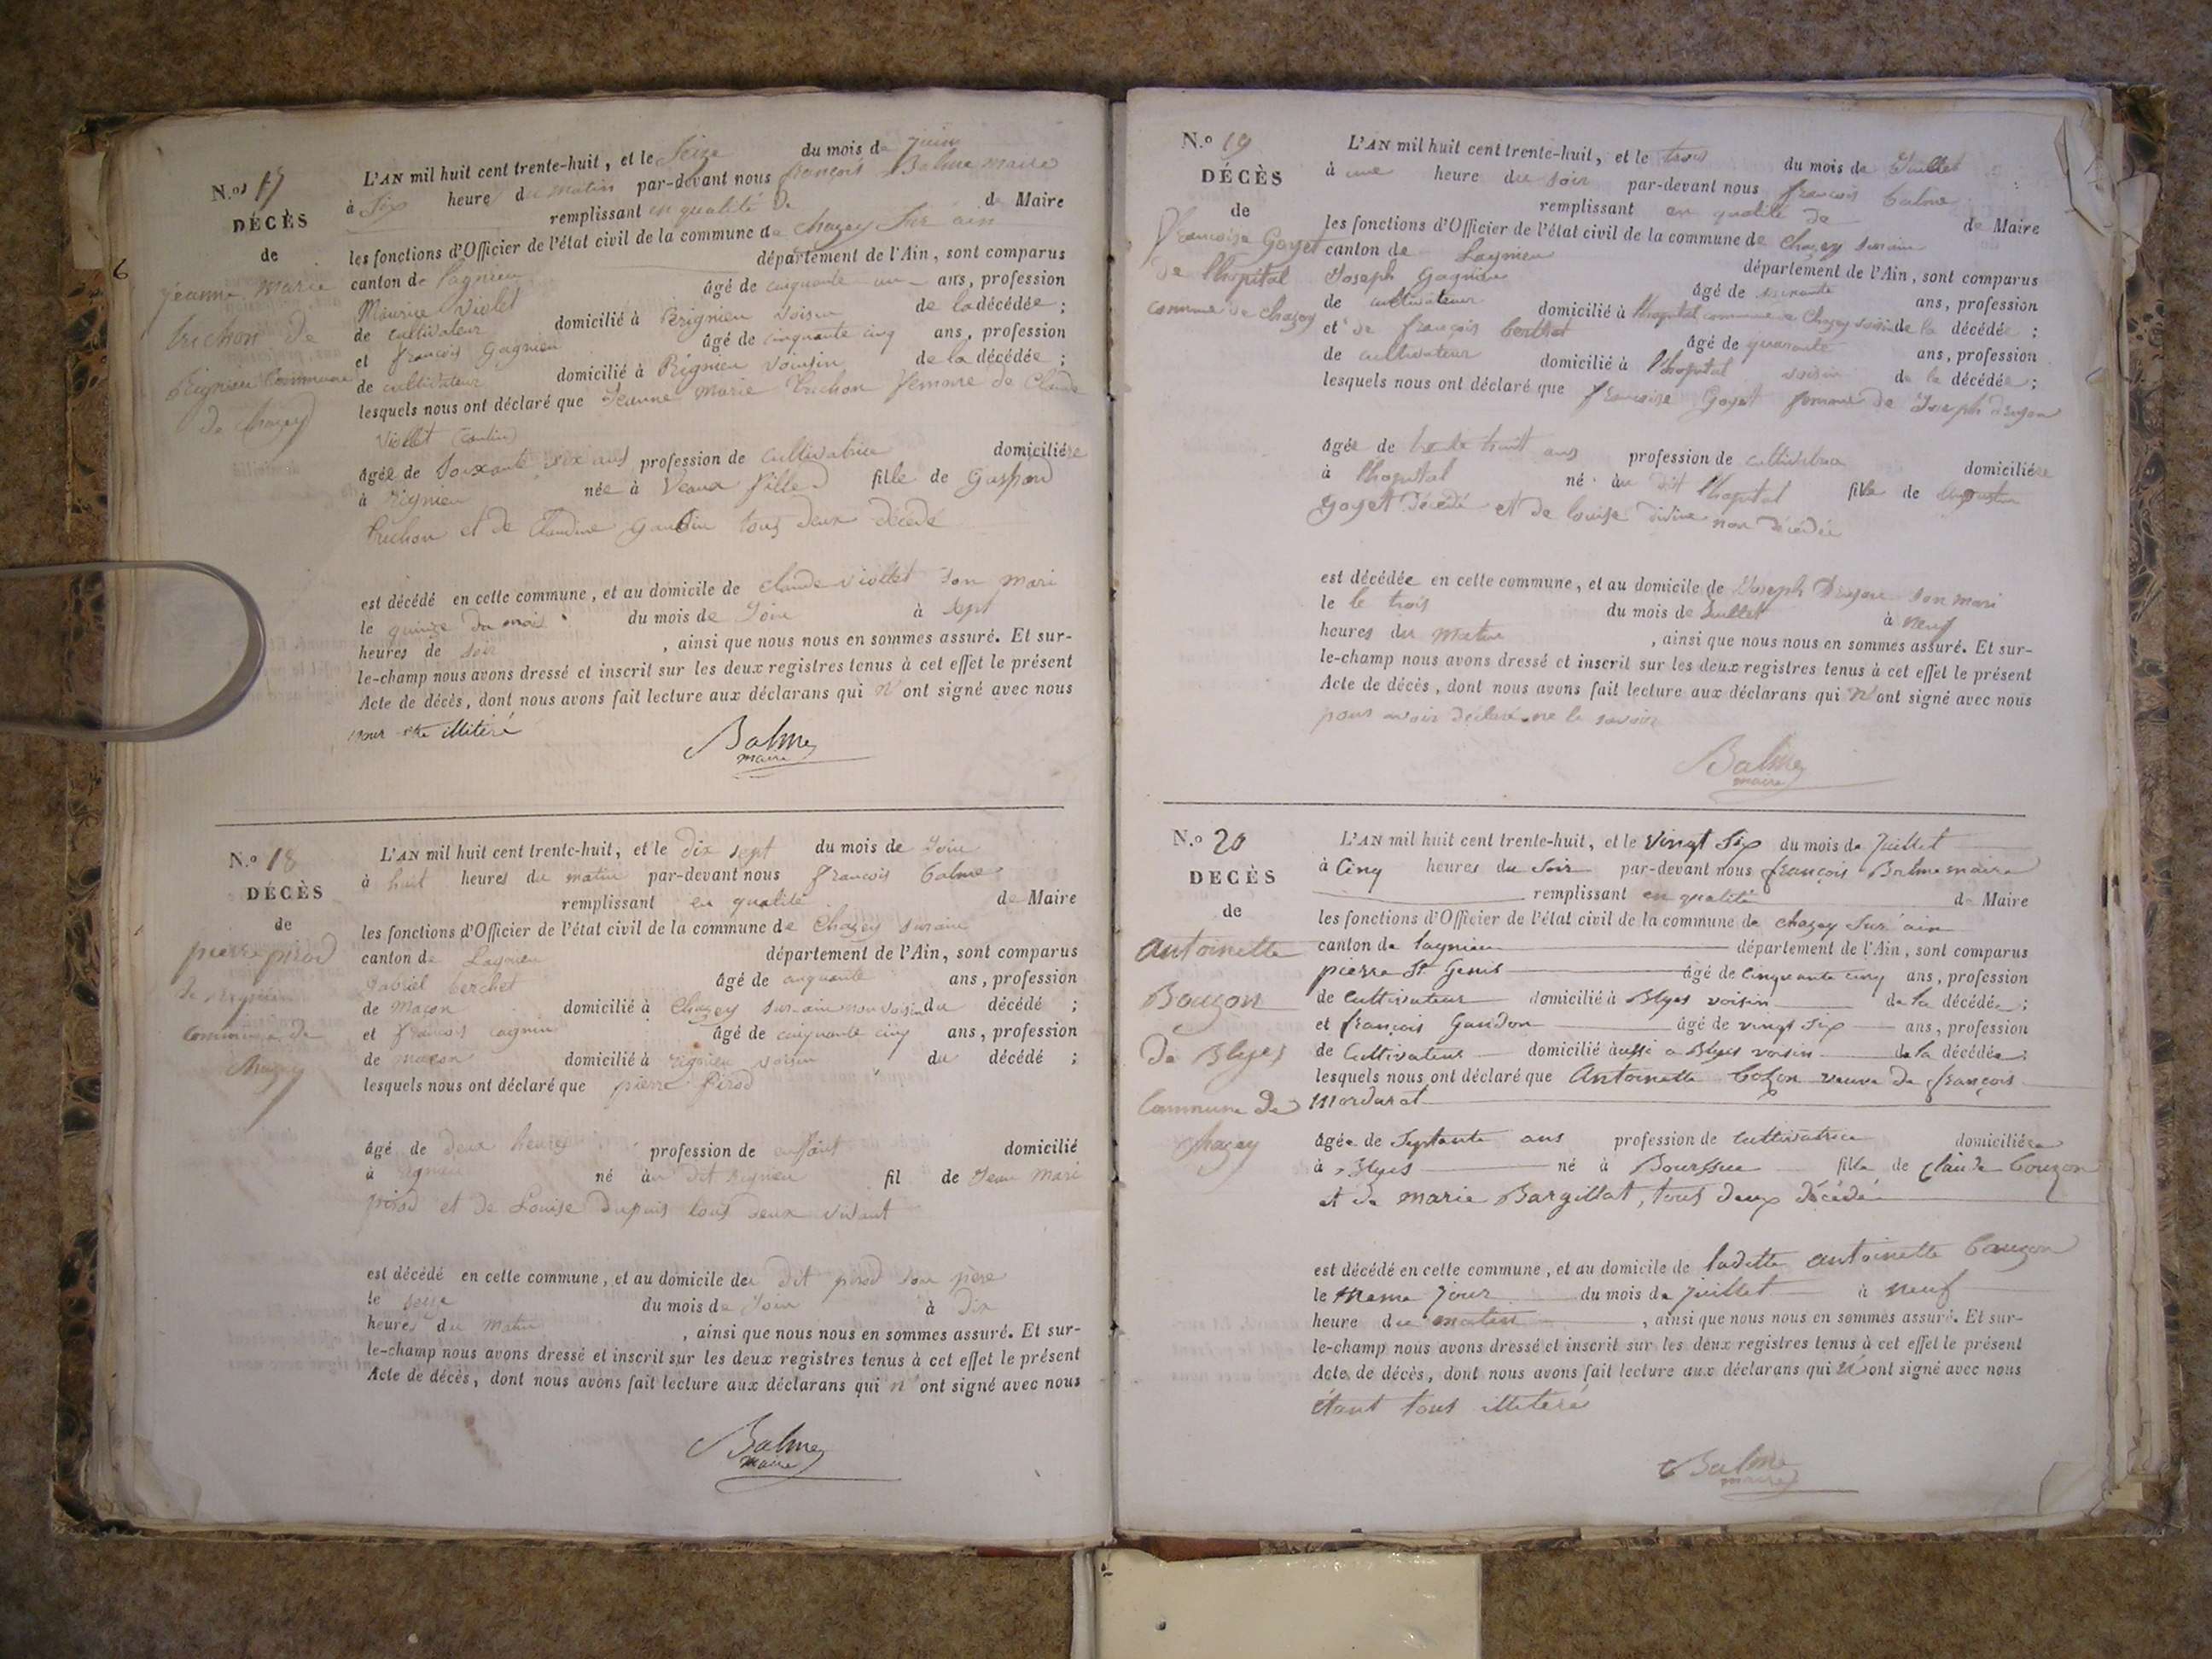 6
N.os 17
DÉCÈS
de
jeanne marie
trichon de
Rignieu Commune
de chazey
L'AN mil huit cent trente-huit, et le Seize du mois de juin
à Six heure du matin par-devant nous françois Balme maire
remplissant en qualité de de Maire
les fonctions d'Officier de l'état civil de la commune de chazey Sur ain
canton de Lagnieu département de l'Ain, sont comparus
Maurice Violet âgé de cinquante un ans, profession
de cultivateur domicilié à Rignieu voisin de la décédée ;
et françois Gagnieu âgé de cinquante cinq ans, profession
de cultivateur domicilié à Rignieu voisin de la décédée ;
lesquels nous ont déclaré que Jeanne marie trichon femme de Claude
Viollet
âgée de Soixante six ans profession de cultivatrice domiciliée
à Rignieu née à Veaux fille fille de Gaspard
trichon et de Claudine tous deux décédé
est décédé en cette commune, et au domicile de claude viollet son mari
le quinze du mois du mois de Join à sept
heures de soir , ainsi que nous nous en sommes assuré. Et sur-
le-champ nous avons dressé et inscrit sur les deux registres tenus à cet effet le présent
Acte de décès, dont nous avons fait lecture aux déclarans qui n'ont signé avec nous
pour être illitéré
Balme
maire
N.o 18
DÉCÈS
de
pierre pirod
de rignieu
commune de
Chazey
L'AN mil huit cent trente-huit, et le dix sept du mois de Join
à huit heures du matin par-devant nous francois balme
remplissant en qualité de Maire
les fonctions d'Officier de l'état civil de la commune de Chazey surain
canton de Lagnieu département de l'Ain, sont comparus
gabriel berchet âgé de cinquante ans, profession
de maçon domicilié à Chazey sur-ain non voisin du décédé ;
et francois cagnieu âgé de cinquante cinq ans, profession
de macon domicilié à rignieu voisin du décédé ;
lesquels nous ont déclaré que pierre pirod
âgé de deux heures profession de enfant domicilié
à rignieu né au dit rignieu fil de Jean Mari
pirod et de Louise Dupuis tous deux vivant
est décédé en cette commune, et au domicile de dit pirod son père
le seize du mois de Join à dix
heures du matin , ainsi que nous nous en sommes assuré. Et sur-
le-champ nous avons dressé et inscrit sur les deux registres tenus à cet effet le présent
Acte de décès, dont nous avons fait lecture aux déclarans qui n'ont signé avec nous
Balme
maire
N.o 19
DÉCÈS
de
françoise Goyet
de l'hopital
commune de chazey
L'AN mil huit cent trente-huit, et le trois du mois de Juillet
à une heure du soir par-devant nous francois balme
remplissant en qualité de de Maire
les fonctions d'Officier de l'état civil de la commune de Chazey surain
canton de Lagnieu département de l'Ain, sont comparus
Joseph Gagnieu âgé de soixante ans, profession
de cultivateur domicilié à l'hopital commune de Chazey voisin de la décédée ;
et de françois berthet âgé de quarante ans, profession
de cultivateur domicilié à l'hopital voisin de la décédée ;
lesquels nous ont déclaré que francoise Goyet femme de Joseph
âgée de trente huit ans profession de cultivatrice domiciliée
à l'hopital né au dit l'hopital fille de augustin
Goyet décédé et de louise non décédée
est décédée en cette commune, et au domicile de Joseph son mari
le le trois du mois de Juillet à neuf
heures du matin , ainsi que nous nous en sommes assuré. Et sur-
le-champ nous avons dressé et inscrit sur les deux registres tenus à cet effet le présent
Acte de décès, dont nous avons fait lecture aux déclarans qui n'ont signé avec nous
pour avoir déclaré ne le savoir
Balme
maire
N.o 20
DECÈS
de
Antoinette
Bouzon
de Blyes
Commune de
Chazey
L'AN mil huit cent trente-huit, et le vingt Six du mois de Juillet
à Cinq heures du Soir par-devant nous françois Balme maire
remplissant en qualité de Maire
les fonctions d'Officier de l'état civil de la commune de chazey Sur ain
canton de lagnieu département de l'Ain, sont comparus
pierre St Genis âgé de cinquante cinq ans, profession
de Cultivateur domicilié à Blyes voisin de la décédée ;
et françois Gaudon âgé de vingt Six ans, profession
de Cultivateur domicilié aussi a Blyes voisin de la décédée ;
lesquels nous ont déclaré que Antoinette bozon veuve de françois
Mordurat
âgée de Septante ans profession de cultivatrice domiciliée
à Blyes né à Bourssue fille de Claude bouzon
et de marie Bargillat, tous deux décédé
est décédé en cette commune, et au domicile de ladette antoinette bouzon
le meme jour du mois de Juillet à neuf
heure du matin , ainsi que nous nous en sommes assuré. Et sur-
le-champ nous avons dressé et inscrit sur les deux registres tenus à cet effet le présent
Acte de décès, dont nous avons fait lecture aux déclarans qui n'ont signé avec nous
étant tous illiteré
Balme
maire